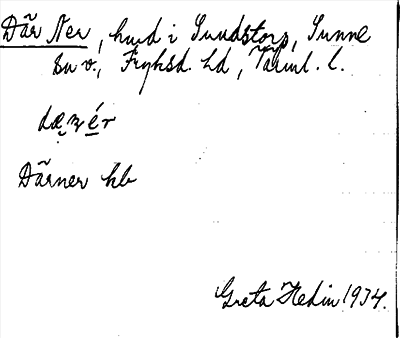 Där Ner, hmd i Sundstorp, Sunne
sn v., Fryksd. hd, Värml. l.
dæ̣ nér
Därner hb
Greta Hedin 1934.